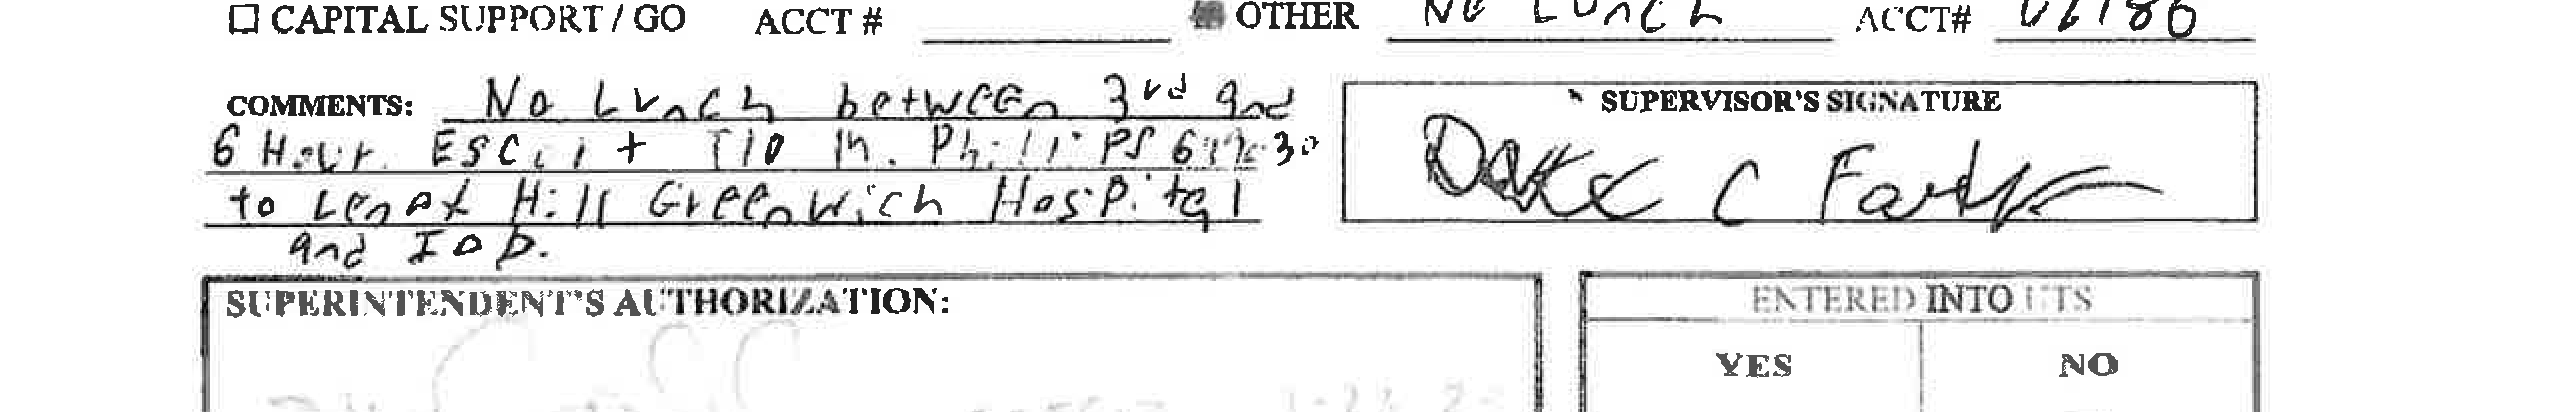 ☐ CAPITAL SUPPORT / GO ACCT # OTHER No Lunch ACCT#
COMMENTS: No Lunch between 3rd and
6 Hour. Escort T/O M. Phillips
to Lenox Hill Greenwich Hospital
and IOD.
SUPERVISOR'S SIGNATURE
SUPERINTENDENT'S AUTHORIZATION:
ENTERED INTO UTS
YES NO